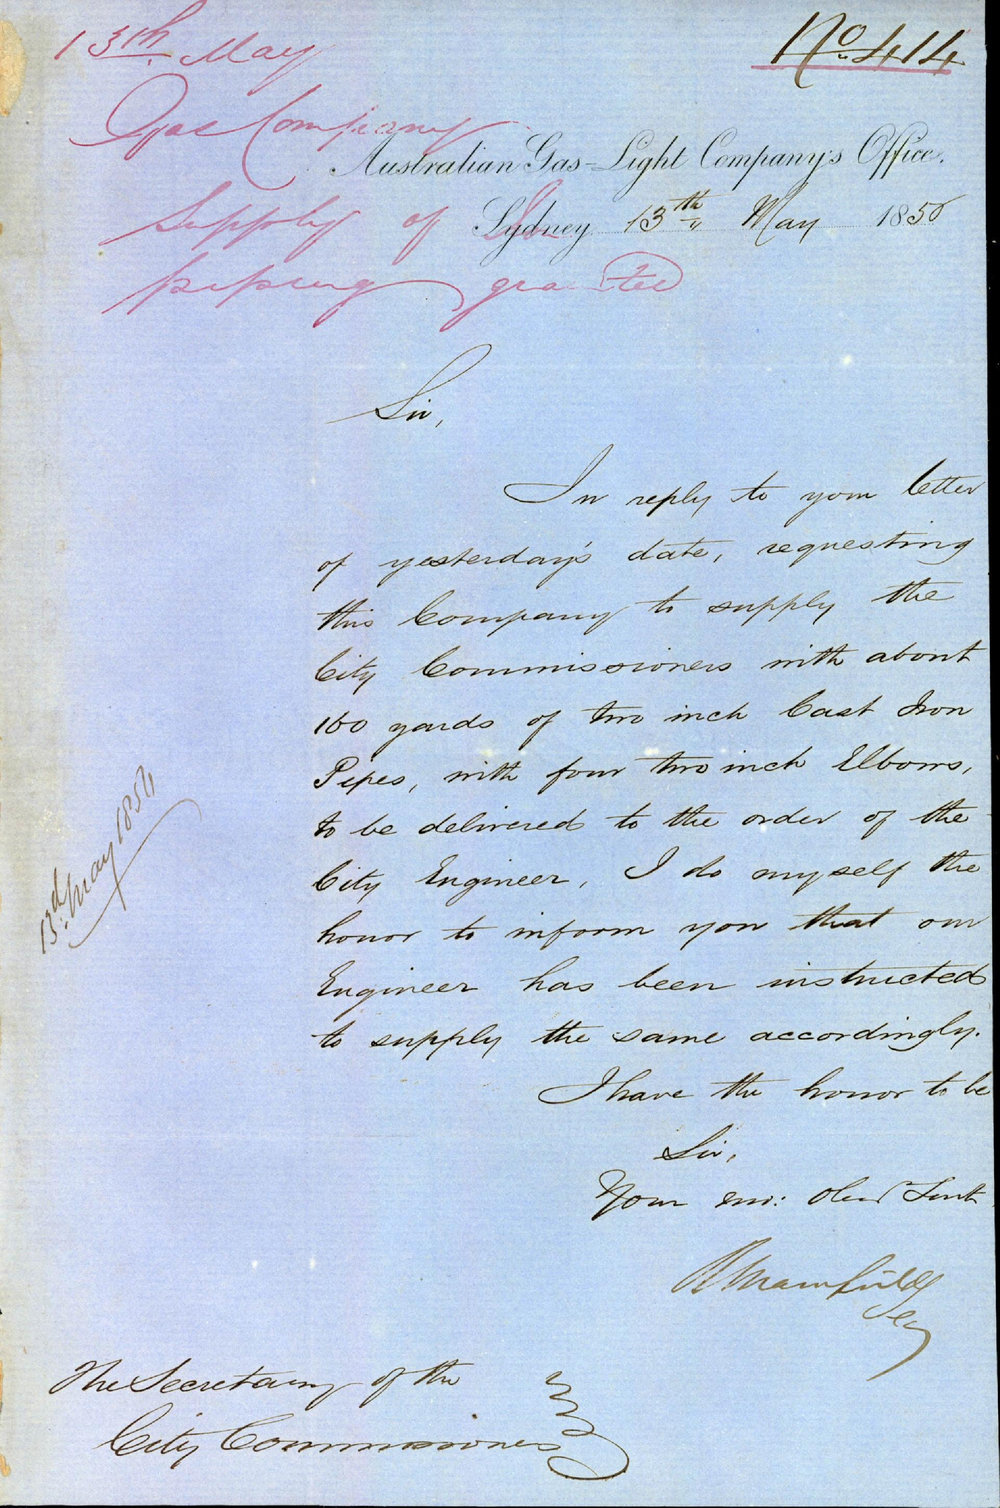 13th May
No. 414
Gas Company
Australian Gas-Light Company's Office.
Supply of
Sydney 13th May 1856
piping granted
Sir,
In reply to your letter
of yesterday's date, requesting
this Company to supply the
City Commissioners with about
160 yards of two inch Cast Iron
Pipes, with four two inch Elbows,
to be delivered to the order of the
City Engineer, I do myself the
honor to inform you that our
Engineer has been instructed
to supply the same accordingly.
13d. May 1856
I have the honor to be
Sir,
Your mo: Obed Servt
R Mansfield
Secy
The Secretary of the
City Commissioners